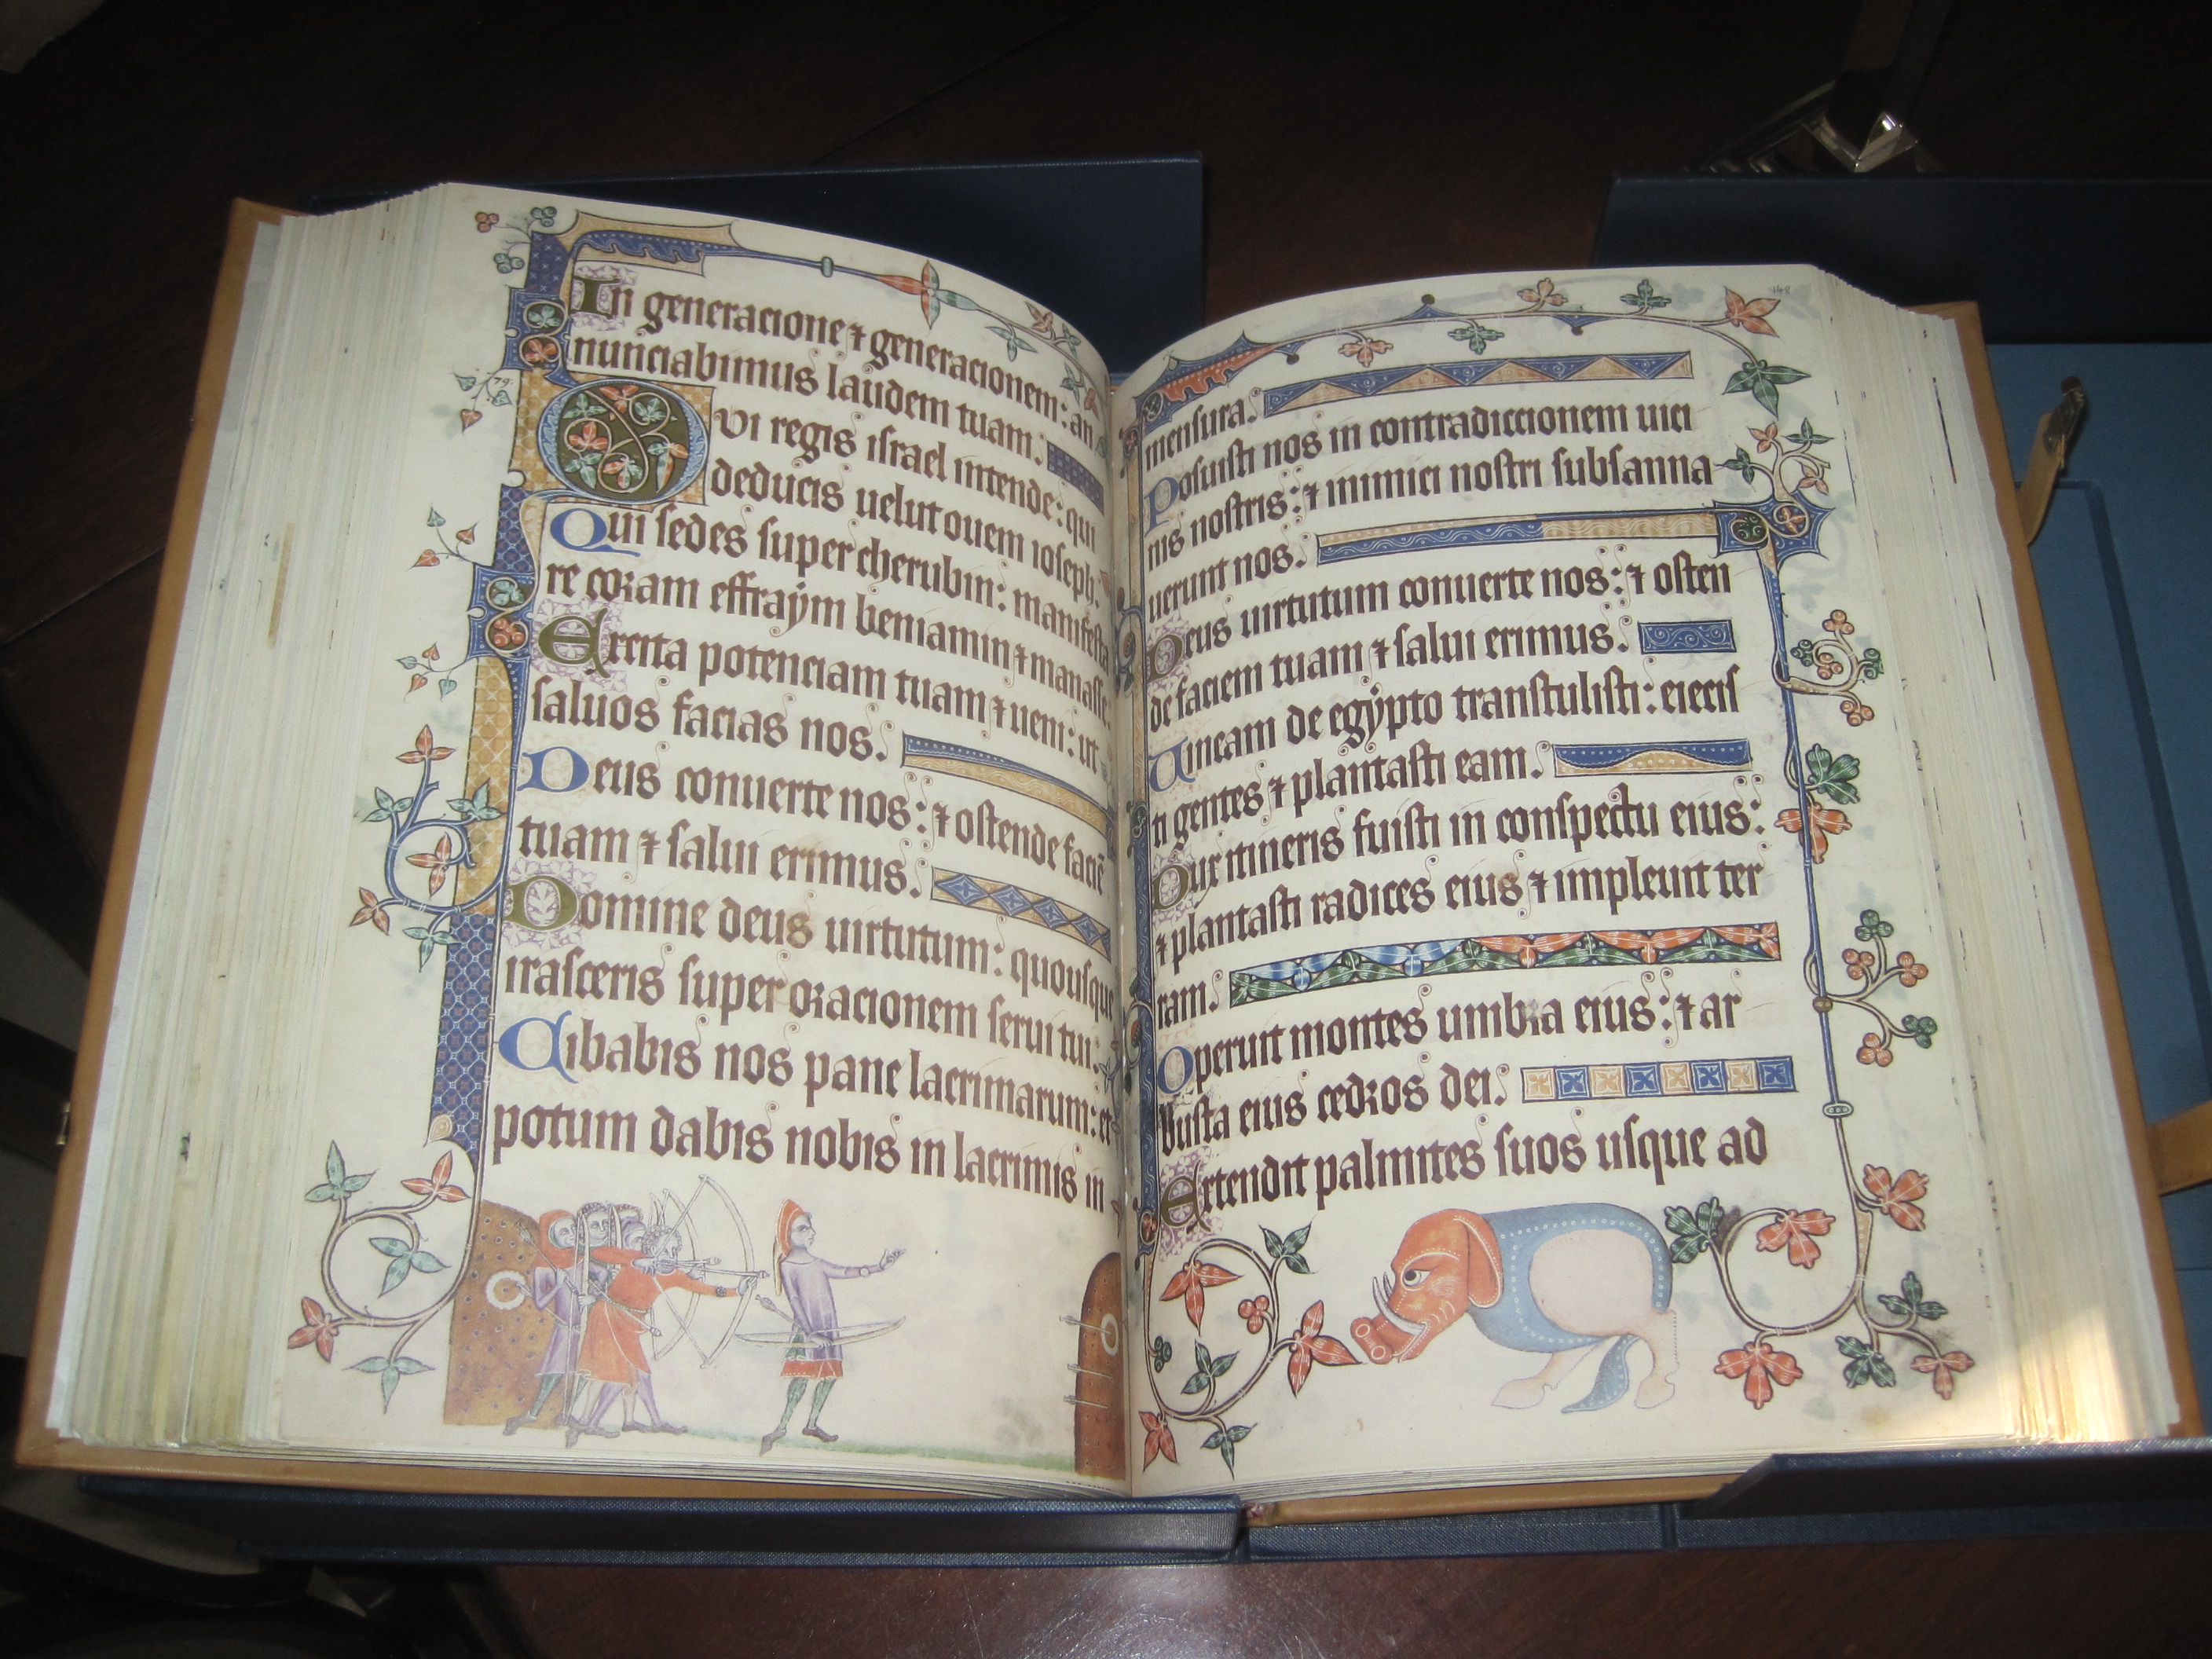 In generacione ⁊ generacionem: an
nunciabimus laudem tuam.
79.
QVI regis israel intende: qui
deducis uelut ouem ioseph.
Qui sedes super cherubin: manifesta
re coram effraym beniamin ⁊ manasse.
Excita potenciam tuam ⁊ ueni: ut
saluos facias nos.
Deus conuerte nos: ⁊ ostende faciē
tuam ⁊ salui erimus.
Domine deus uirtutum: quousque
irasceris super oracionem serui tui.
Cibabis nos pane lacrimarum: et
potum dabis nobis in lacrimis in
148
mensura.
Posuisti nos in contradiccionem uici
nis nostris: ⁊ inimici nostri subsanna
uerunt nos.
Deus uirtutum conuerte nos: ⁊ osten
de faciem tuam ⁊ salui erimus.
Uineam de egypto transtulisti: eiecis
ti gentes ⁊ plantasti eam.
Dux itineris fuisti in conspectu eius:
⁊ plantasti radices eius ⁊ impleuit ter
ram.
Operuit montes umbra eius: ⁊ ar
busta eius cedros dei.
Extendit palmites suos usque ad